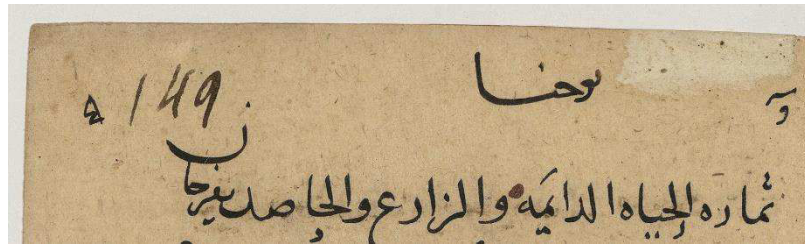 يوحنا
149
ثماره الحياه الدايمه والزارع والحاصد يفرحان